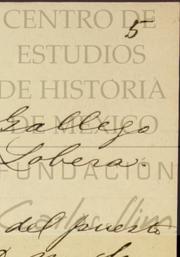 CENTRO DE
5
ESTUDIOS
DE HISTORIA
DE MÉXICO
Gallego
Lobera.
FUNDACIÓN
Carlos Slim
del puerto